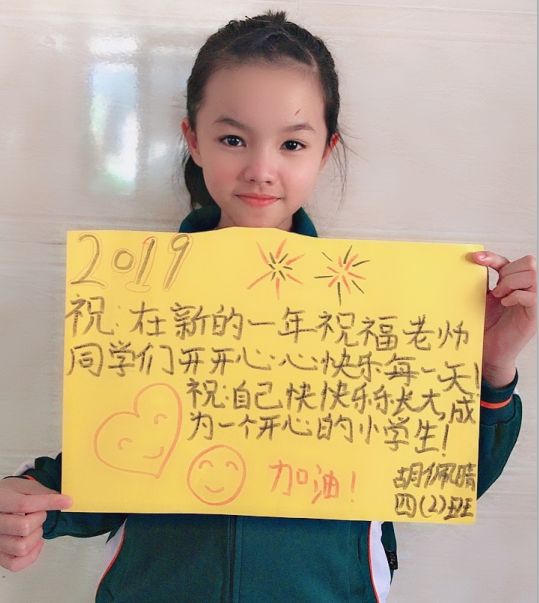 2019
祝:在新的一年祝福老师
同学们开开心心快乐每一天!
祝:自己快快乐乐长大,成
为一个开心的小学生!
加油!
胡佩晴
四(2)班